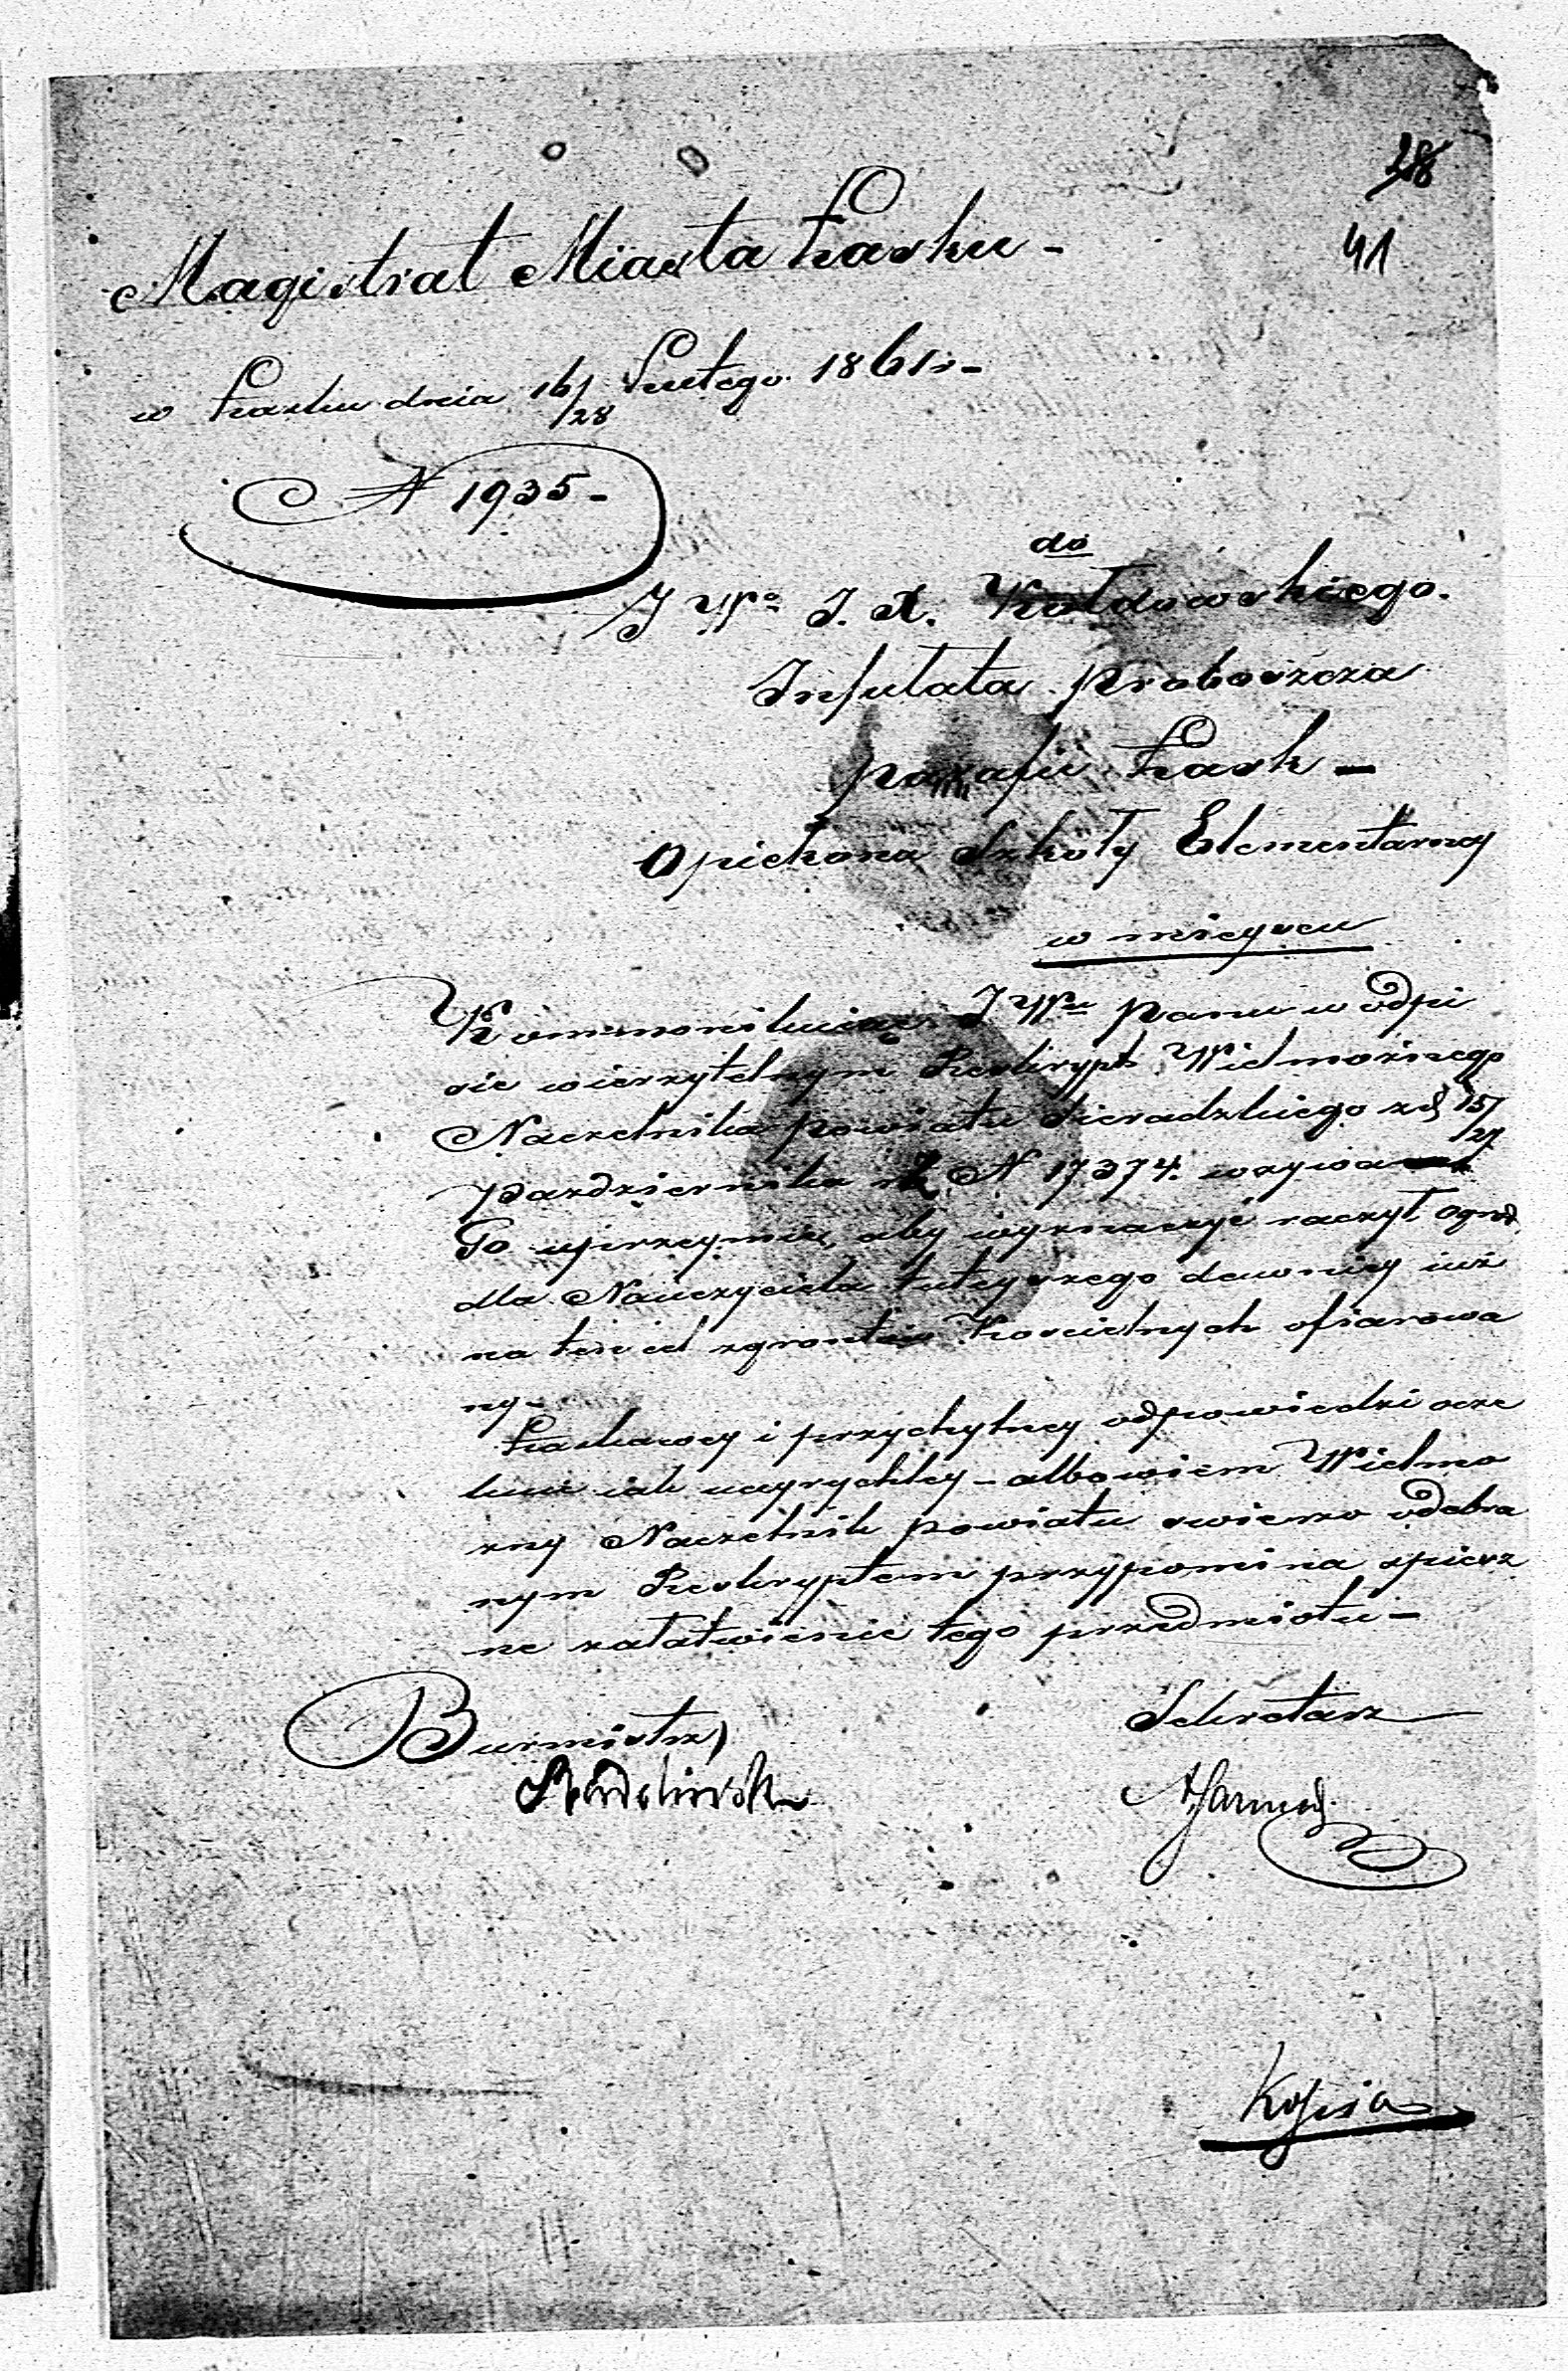 28
41
Magistrat Miasta Łasku -
w Łasku dnia 16/28 Lutego 1861 r -
N 1935 -
do
JWo J. X. Kołdowskiego.
Infułata Proboszcza
parafii Łask -
Opiekona Szkoły Elementarney
w mieyscu
Kommonikuiąc JWu Panu w odpi
sie wierzytelnym Reskrypt Wielmożnego
Naczelnika powiatu Sieradzkiego z d 15/27
Pazdziernika N 17374. wzywa
Go uprzeymie, aby wyznaczyć raczył ogrod
dla Nauczyciela tuteyszego dawniey iuż
na ten cel zgrontow Koscielnych ofiarowa
ny -
Łaskawey i przychylney odpowiedzi ocze
kuie iak nayrychley - albowiem Wielmo
zny Naczelnik powiatu swiezo odebra
nym Reskryptem przypomina spiesz
ne załatwienie tego przedmiotu -
Burmistrz
Sekretarz
Kopia